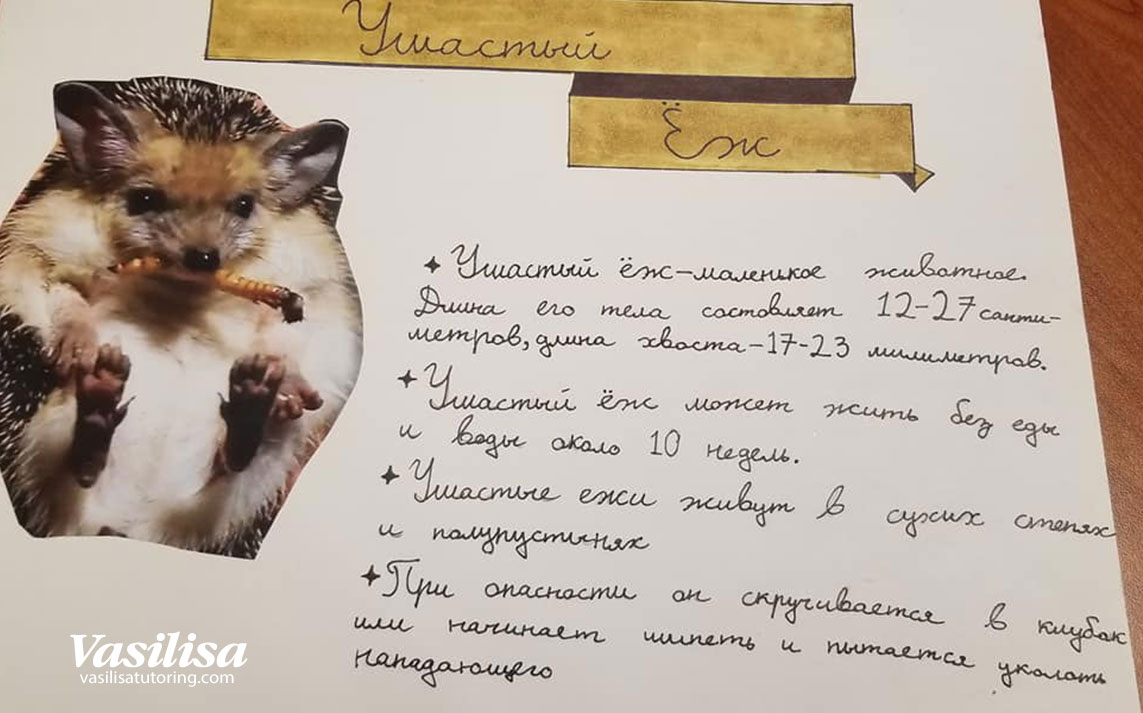 Ушастый
Ёж
Ушастый ёж-маленькое животное.
Длина его тела составляет 12-27 санти-
метров, длина хвоста-17-23 милиметров.
Ушастый ёж может жить без еды
и воды около 10 недель.
Ушастые ежи живут в сухих степях
и полупустынях
При опасности он скручивается в клубок
или начинает шипеть и пытается уколоть
нападающего
Vasilisa
vasilisatutoring.com